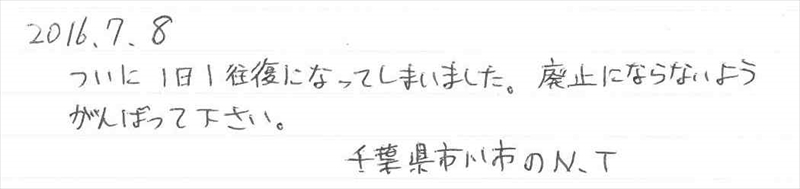 2016.7.8
ついに1日1往復になってしまいました。廃止にならないよう
がんばって下さい。
千葉県市川市のN.T